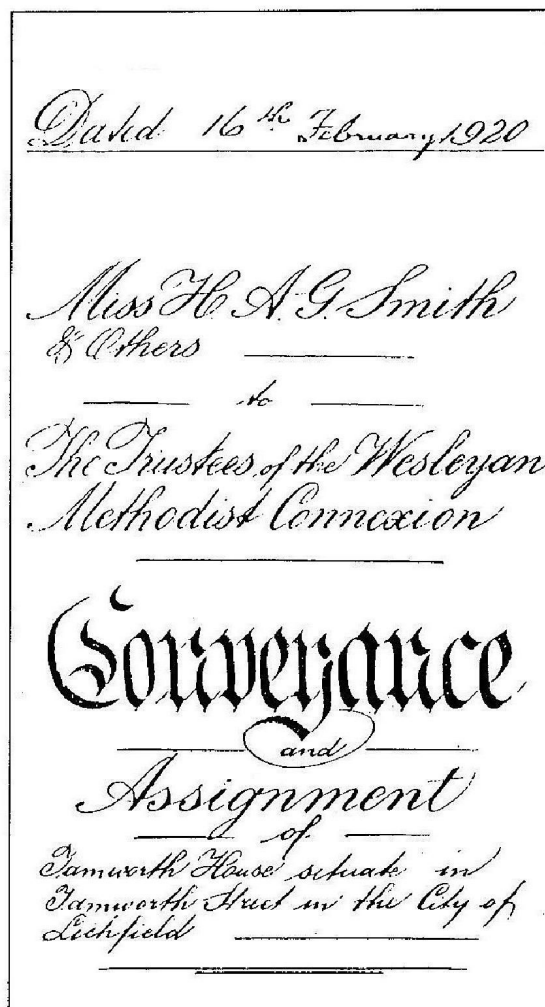 Dated 16th February 1920
Miss H. A. G. Smith
& Others
to
The Trustees of the Wesleyan
Methodist Connexion
Conveyance
and
Assignment
of
Tamworth House situate in
Tamworth Street in the City of
Lichfield